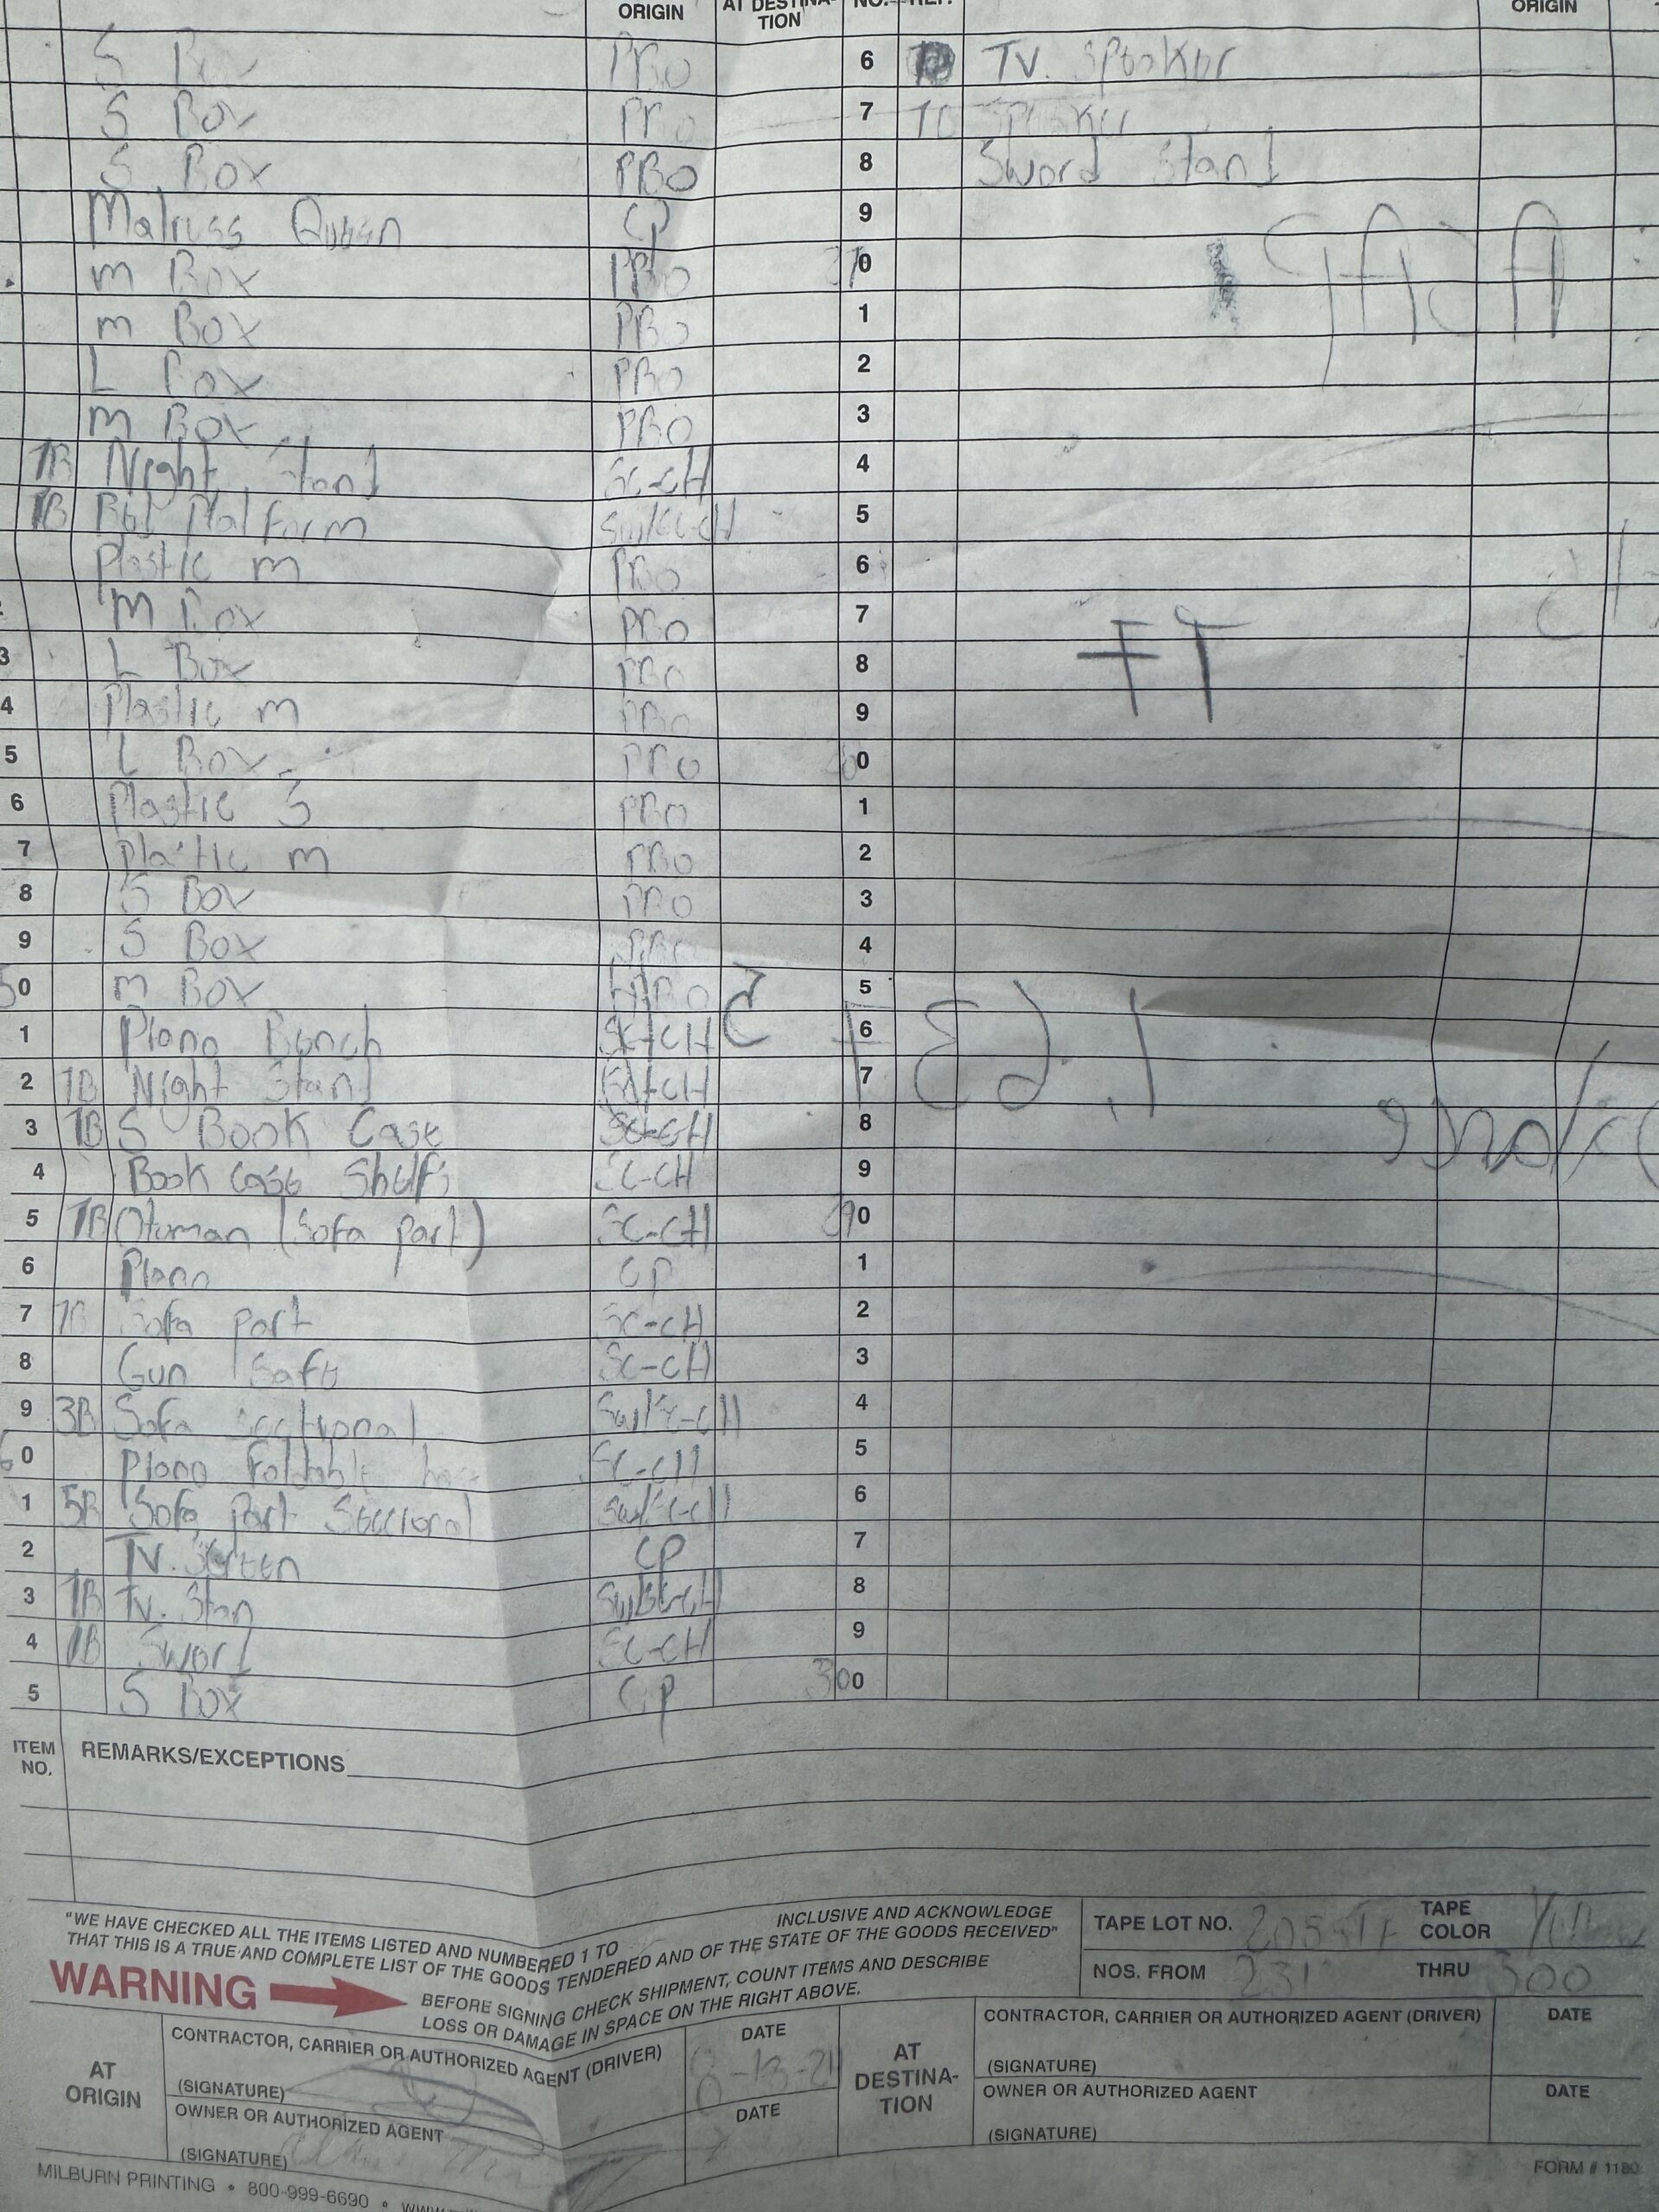 ORIGIN AT DESTINA-TION NO. REF. ORIGIN
S Box PBO 6 TV. Speaker
S Box PBO 7 Speaker
S Box PBO 8 Sword Stand
Matruss Queen CP 9
m Box PBO 0
m Box PBO 1
L Box PBO 2
m Box PBO 3
1B Night Stand Sc-cH 4
1B Bed Platform Sw/Sc-cH 5
Plastic m PBO 6
m Box PBO 7
3 L Box PBO 8
4 Plastic m PBO 9
5 L Box PBO 0
6 Plastic S PBO 1
7 Plastic m PBO 2
8 S Box PBO 3
9 S Box PBO 4
50 m Box PBO 5
1 Piano Bench Sc-cH 6
2 1B Night Stand cH 7
3 1B S Book Case Sc-cH 8
4 Book case Shelfs Sc-cH 9
5 1B Otoman (Sofa part) Sc-cH 0
6 Piano CP 1
7 1B Sofa part Sc-cH 2
8 Gun Safe Sc-cH 3
9 3B Sofa Sectional Sw/Sc-cH 4
60 Piano Foldable Sc-cH 5
1 5B Sofa part Sectional Sw/Sc-cH 6
2 TV. Screen CP 7
3 1B TV. Stan Sw/Sc-cH 8
4 1B Sword Sc-cH 9
5 S Box CP 300
ITEM NO. REMARKS/EXCEPTIONS
"WE HAVE CHECKED ALL THE ITEMS LISTED AND NUMBERED 1 TO INCLUSIVE AND ACKNOWLEDGE
THAT THIS IS A TRUE AND COMPLETE LIST OF THE GOODS TENDERED AND OF THE STATE OF THE GOODS RECEIVED"
WARNING
BEFORE SIGNING CHECK SHIPMENT, COUNT ITEMS AND DESCRIBE
LOSS OR DAMAGE IN SPACE ON THE RIGHT ABOVE.
TAPE LOT NO. TAPE COLOR Yellow
NOS. FROM 231 THRU 300
AT ORIGIN
CONTRACTOR, CARRIER OR AUTHORIZED AGENT (DRIVER) DATE
(SIGNATURE)
OWNER OR AUTHORIZED AGENT DATE
(SIGNATURE)
AT DESTINA-TION
CONTRACTOR, CARRIER OR AUTHORIZED AGENT (DRIVER) DATE
(SIGNATURE)
OWNER OR AUTHORIZED AGENT DATE
(SIGNATURE)
MILBURN PRINTING • 800-999-6690 •
FORM # 1180